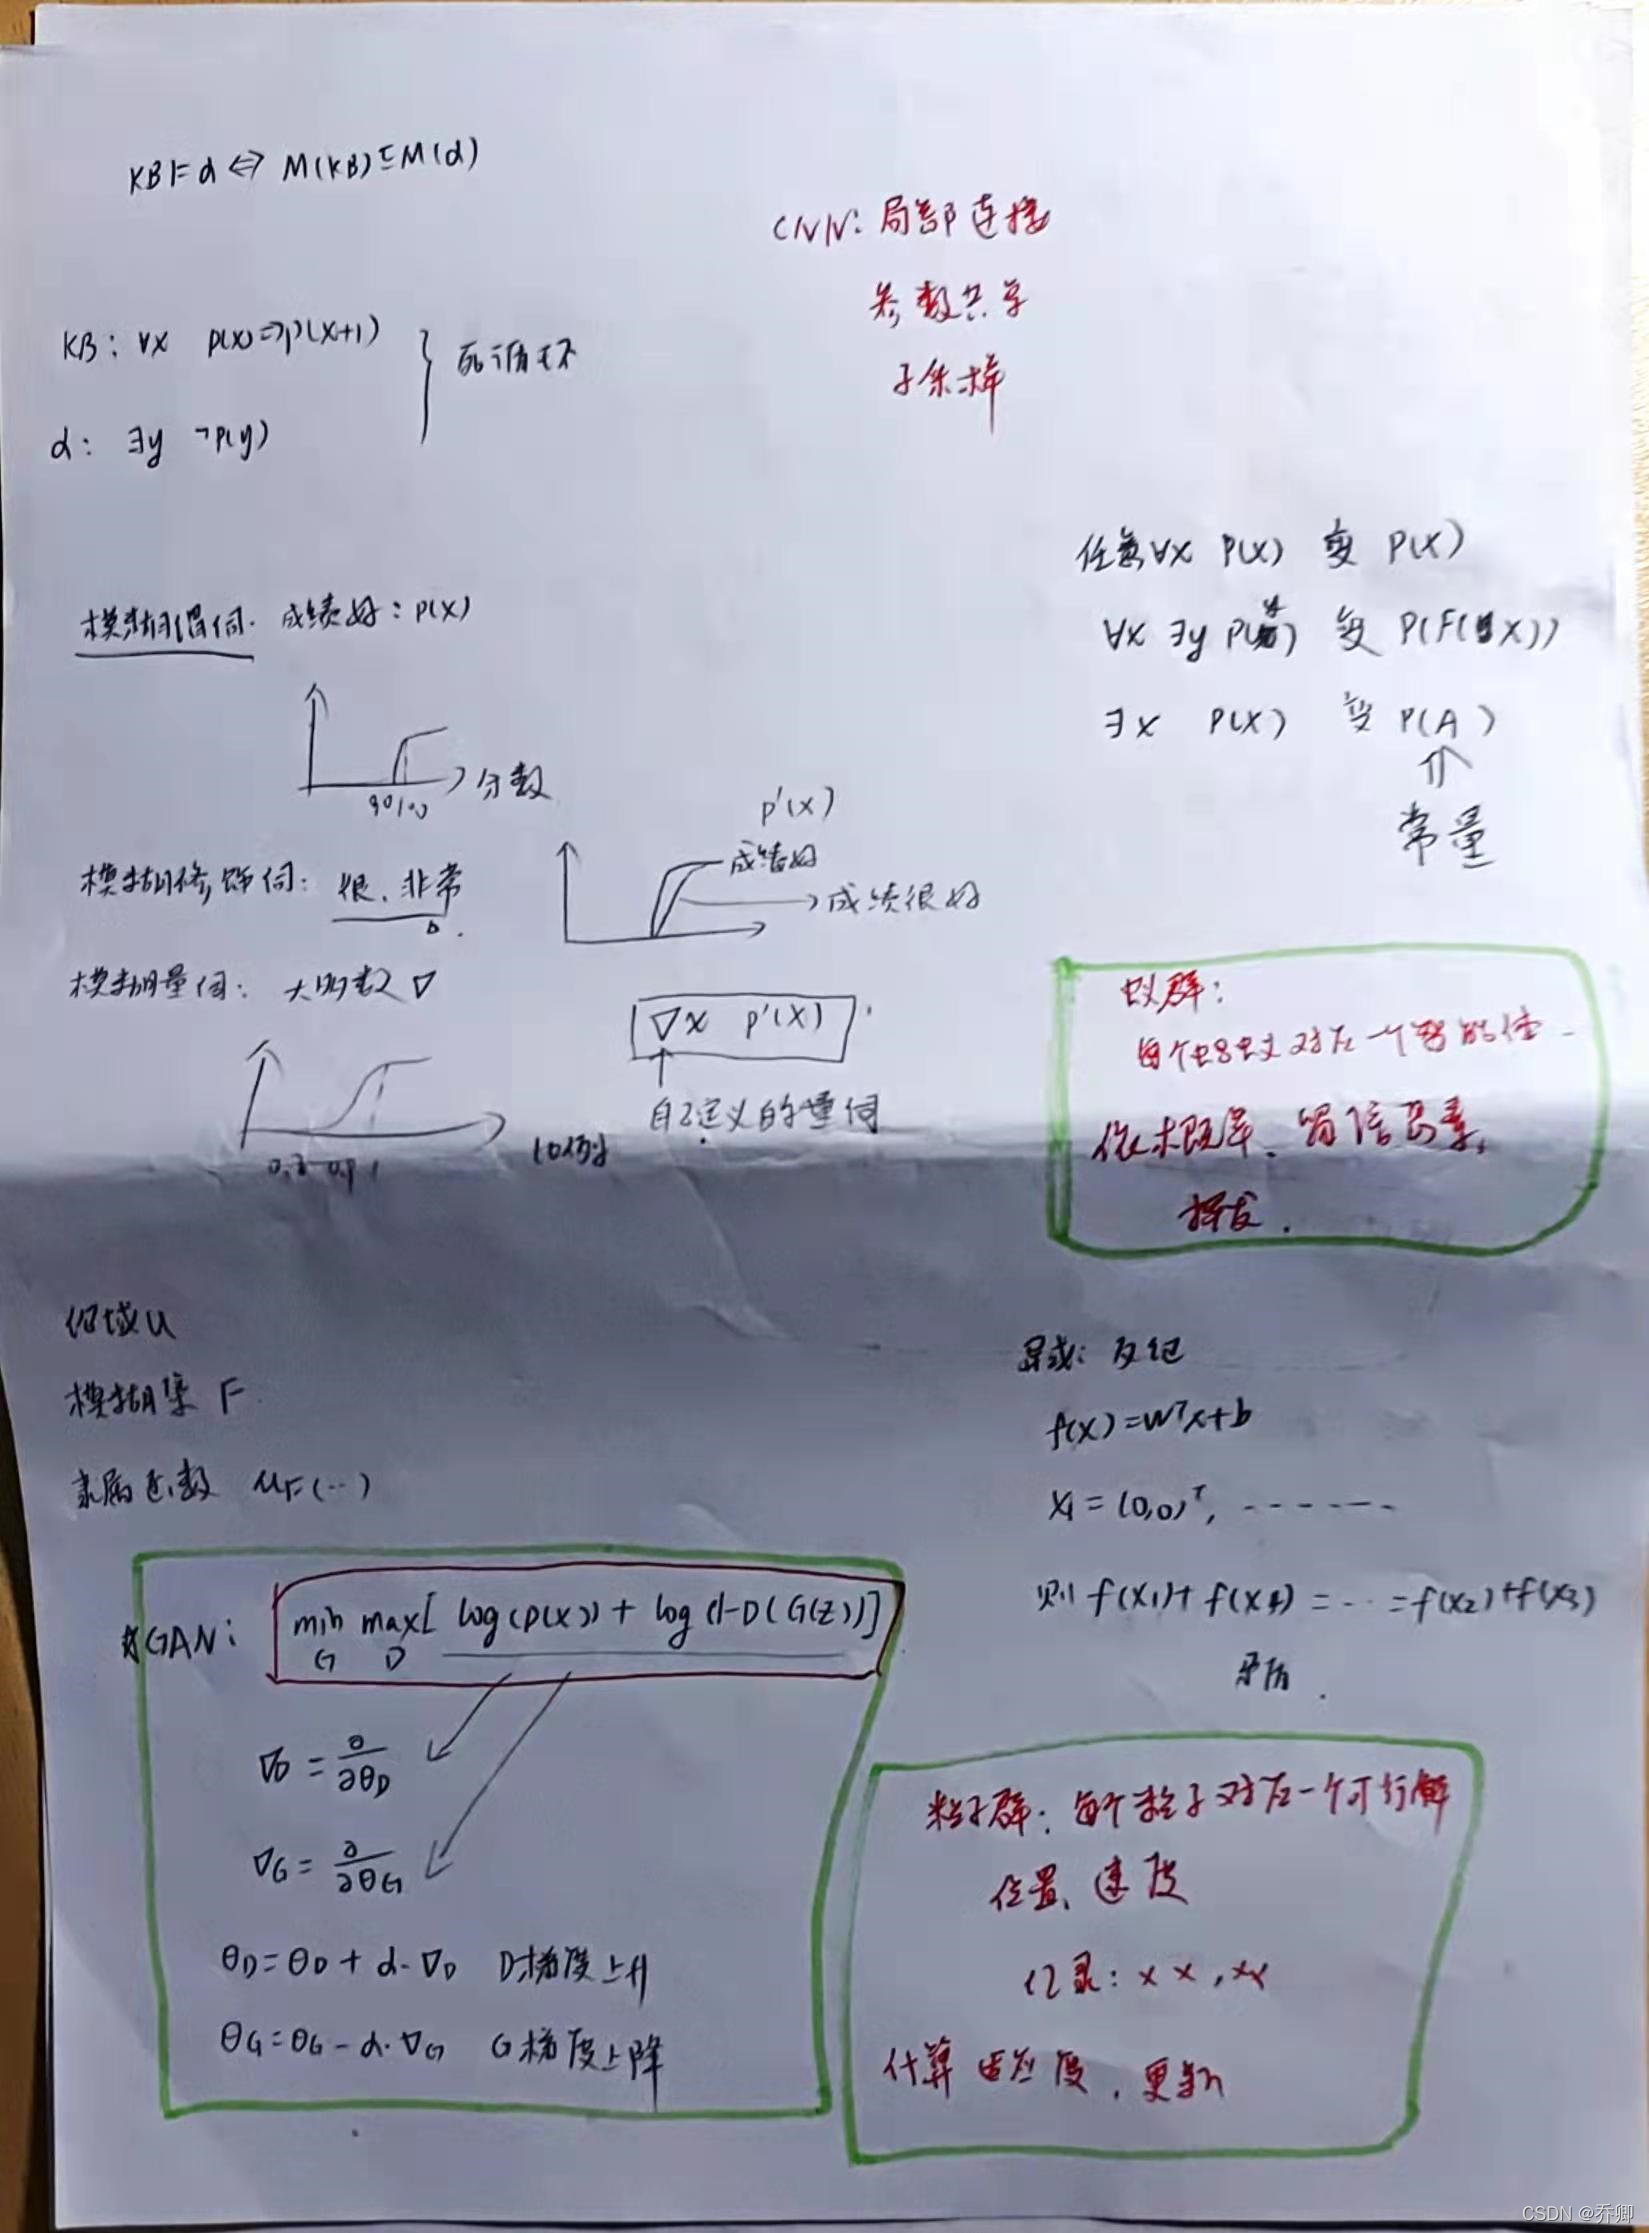 KB⊨α ⇔ M(KB)⊆M(α)
CNN: 局部连接
参数共享
子采样
KB: ∀x P(x)⇒P(x+1)
死循环
α: ∃y ¬P(y)
任意∀x P(x) 变 P(x)
∀x ∃y P(y) 变 P(F(x))
∃x P(x) 变 P(A)
常量
模糊谓词. 成绩好: P(x)
分数
90 100
P'(x)
成绩好
成绩很好
模糊修饰词: 很、非常
模糊量词: 大多数 ∇
∇x P'(x)
自己定义的量词
比例
0.9 1
蚁群:
每个蚂蚁对应一个智能体
依概率、留信息素,
挥发.
论域U
模糊集 F
隶属函数 μF(…)
异或: 反证
f(x)=wᵀx+b
x₁=(0,0)ᵀ, -------
则 f(x₁)+f(x₄)=…=f(x₂)+f(x₃)
矛盾.
GAN: min max[ log(D(x))+log(1-D(G(z)))]
G D
∇D = ∂/∂θD
∇G = ∂/∂θG
θD=θD+α·∇D D梯度上升
θG=θG-α·∇G G梯度上降
粒子群: 每个粒子对应一个可行解
位置、速度
记录: xx, xx
计算适应度, 更新
CSDN @乔卿